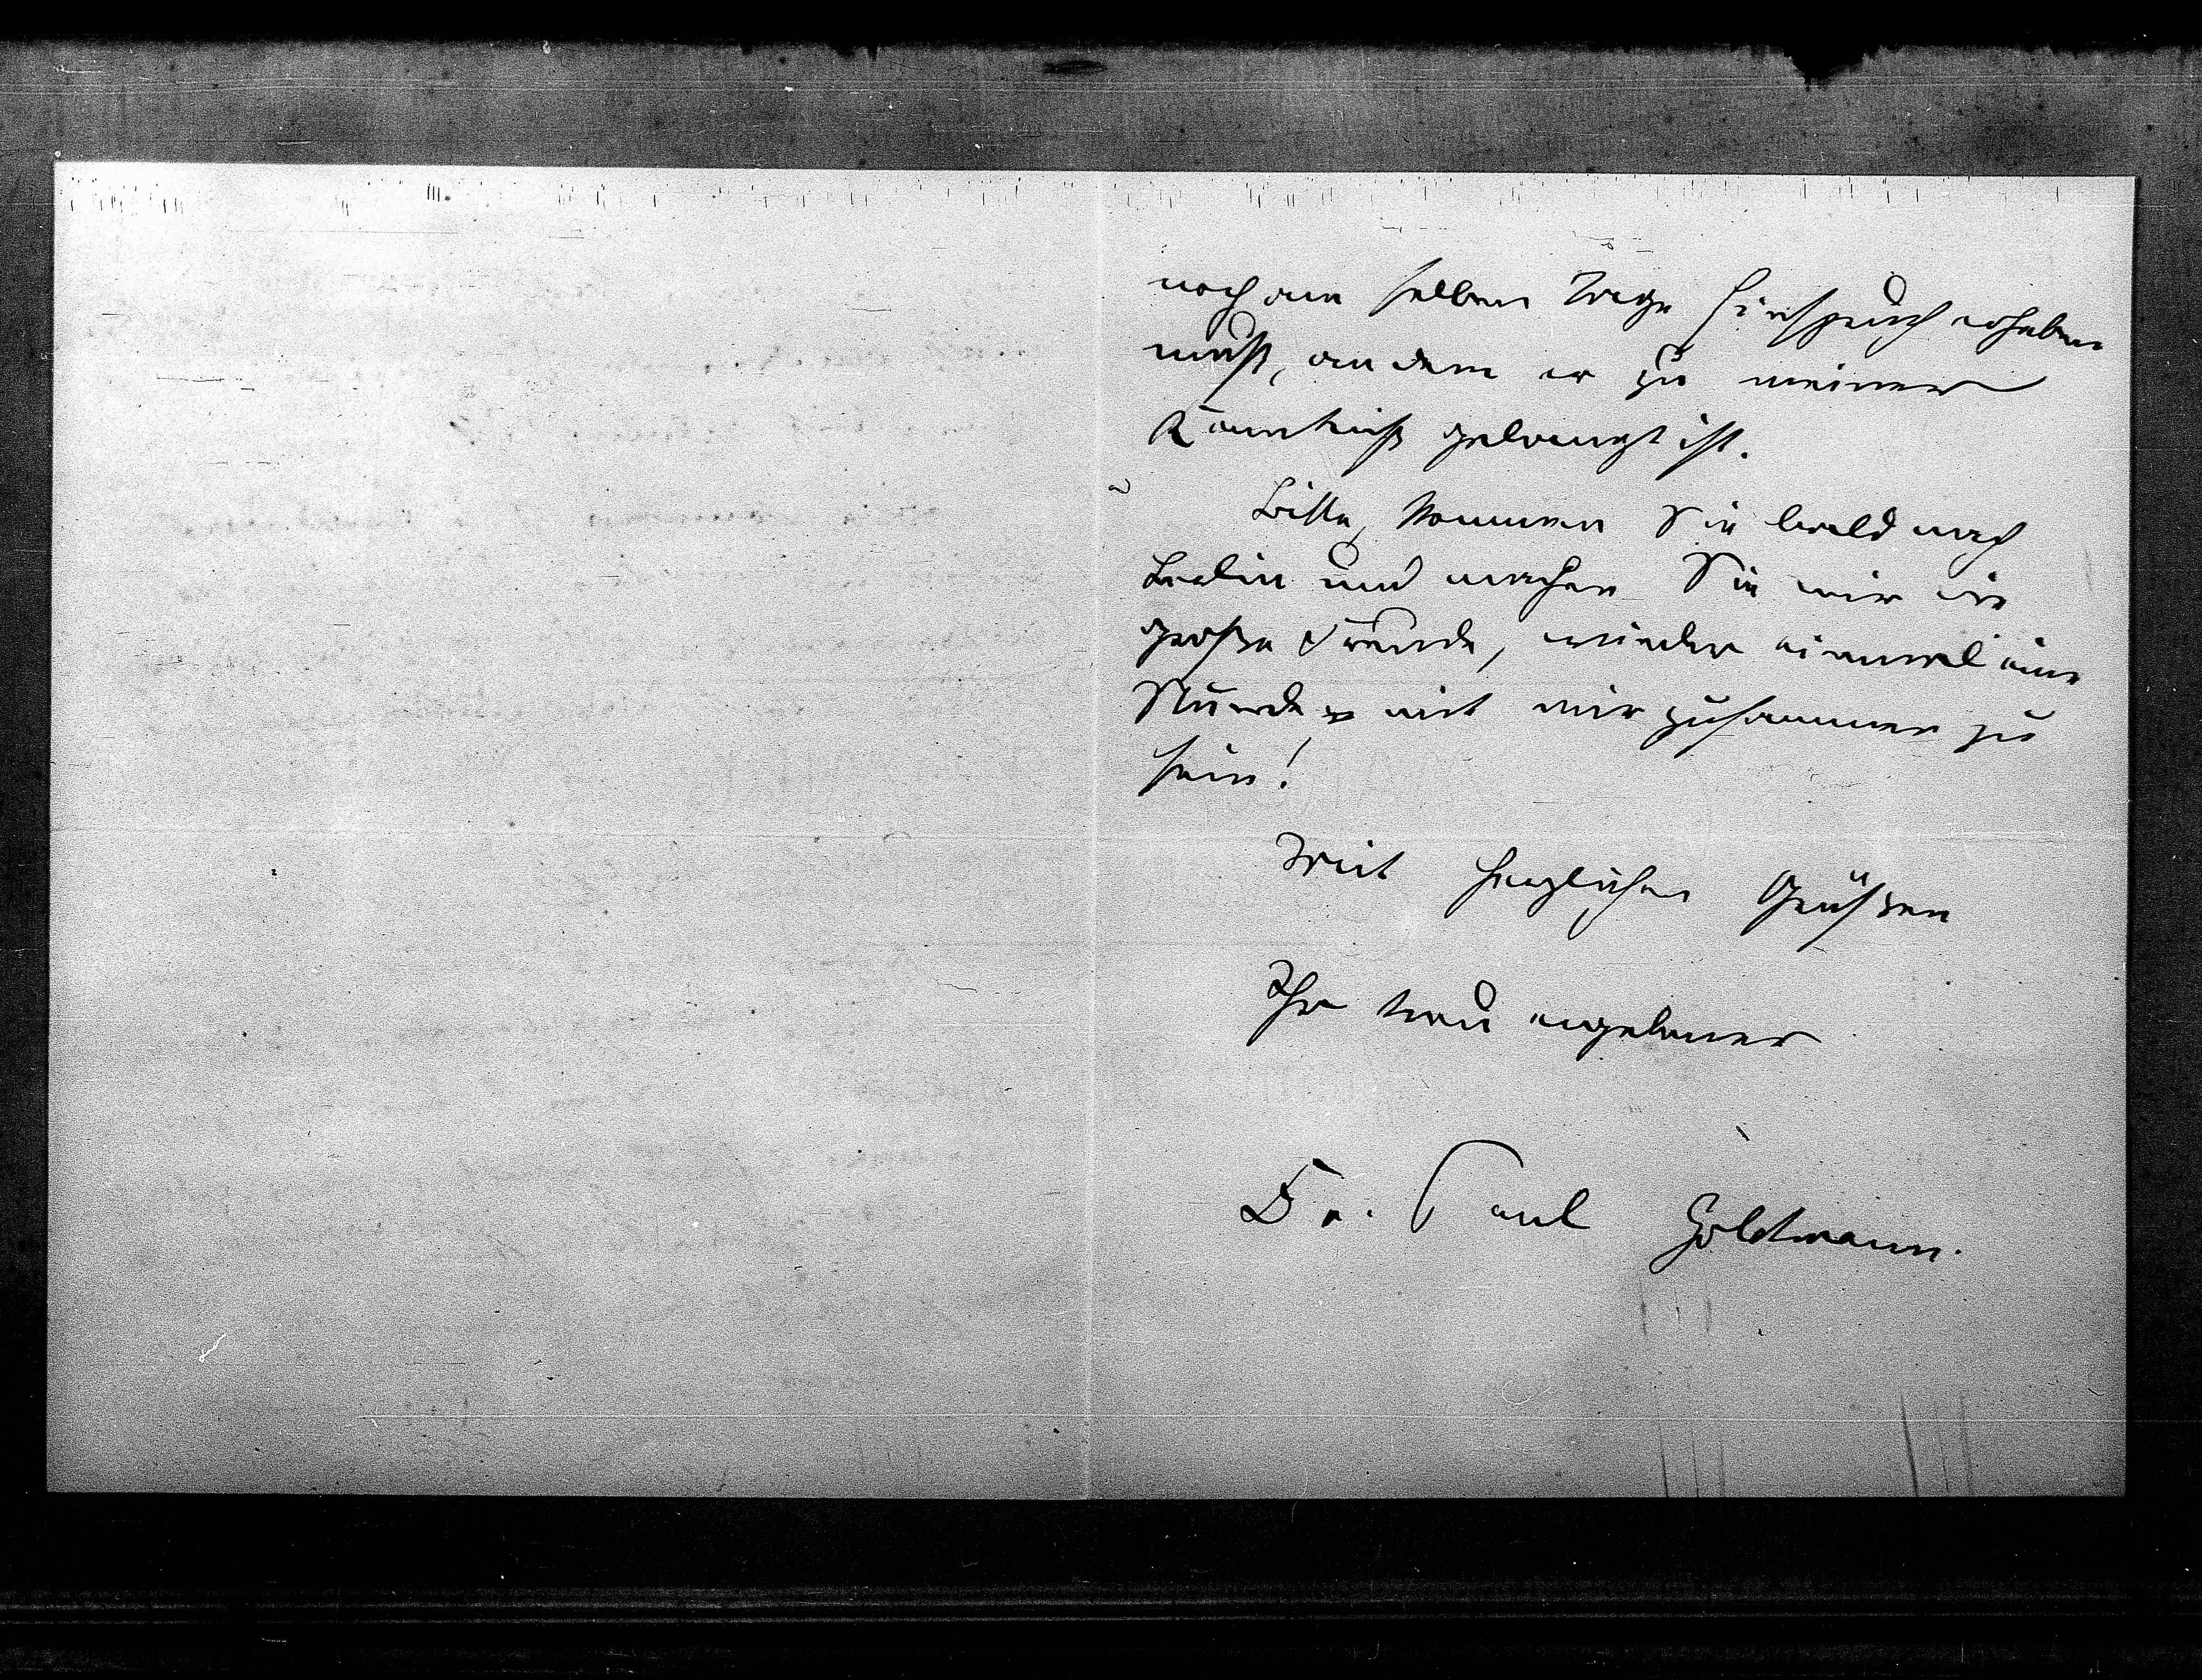 noch am selben Tage Einspruch erheben
muß, an dem er zu meiner
Kenntniß gelangt ist.
Bitte, kommen Sie bald nach
Berlin und machen Sie mir die
große Freude, wieder einmal eine
Stunde mit mir zusammen zu
sein!
Mit herzlichen Grüßen
Ihr treu ergebener
Dr. Paul Goldmann.